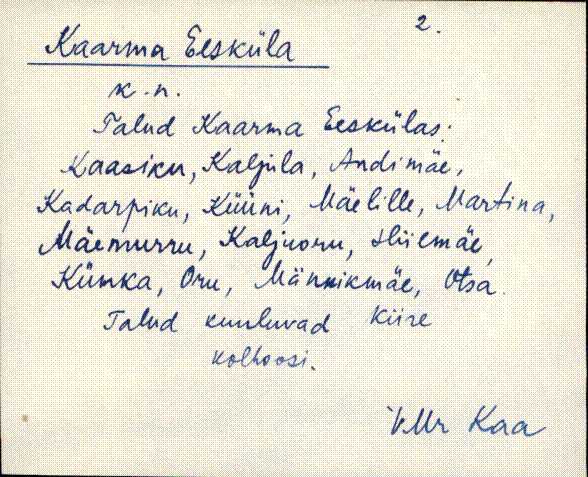 2.
Kaarma Eesküla
k.n.
Talud Kaarma Eeskülas:
Kaasiku, Kaljula, Andimäe,
Kadarpiku, Küüni, Mäelille, Martina,
Mäemurru, Kaljuoru, Hiiemäe,
Künka, Oru, Männikmäe, Otsa.
Talud kuuluvad Kiire
kolhoosi.
VMr Kaa